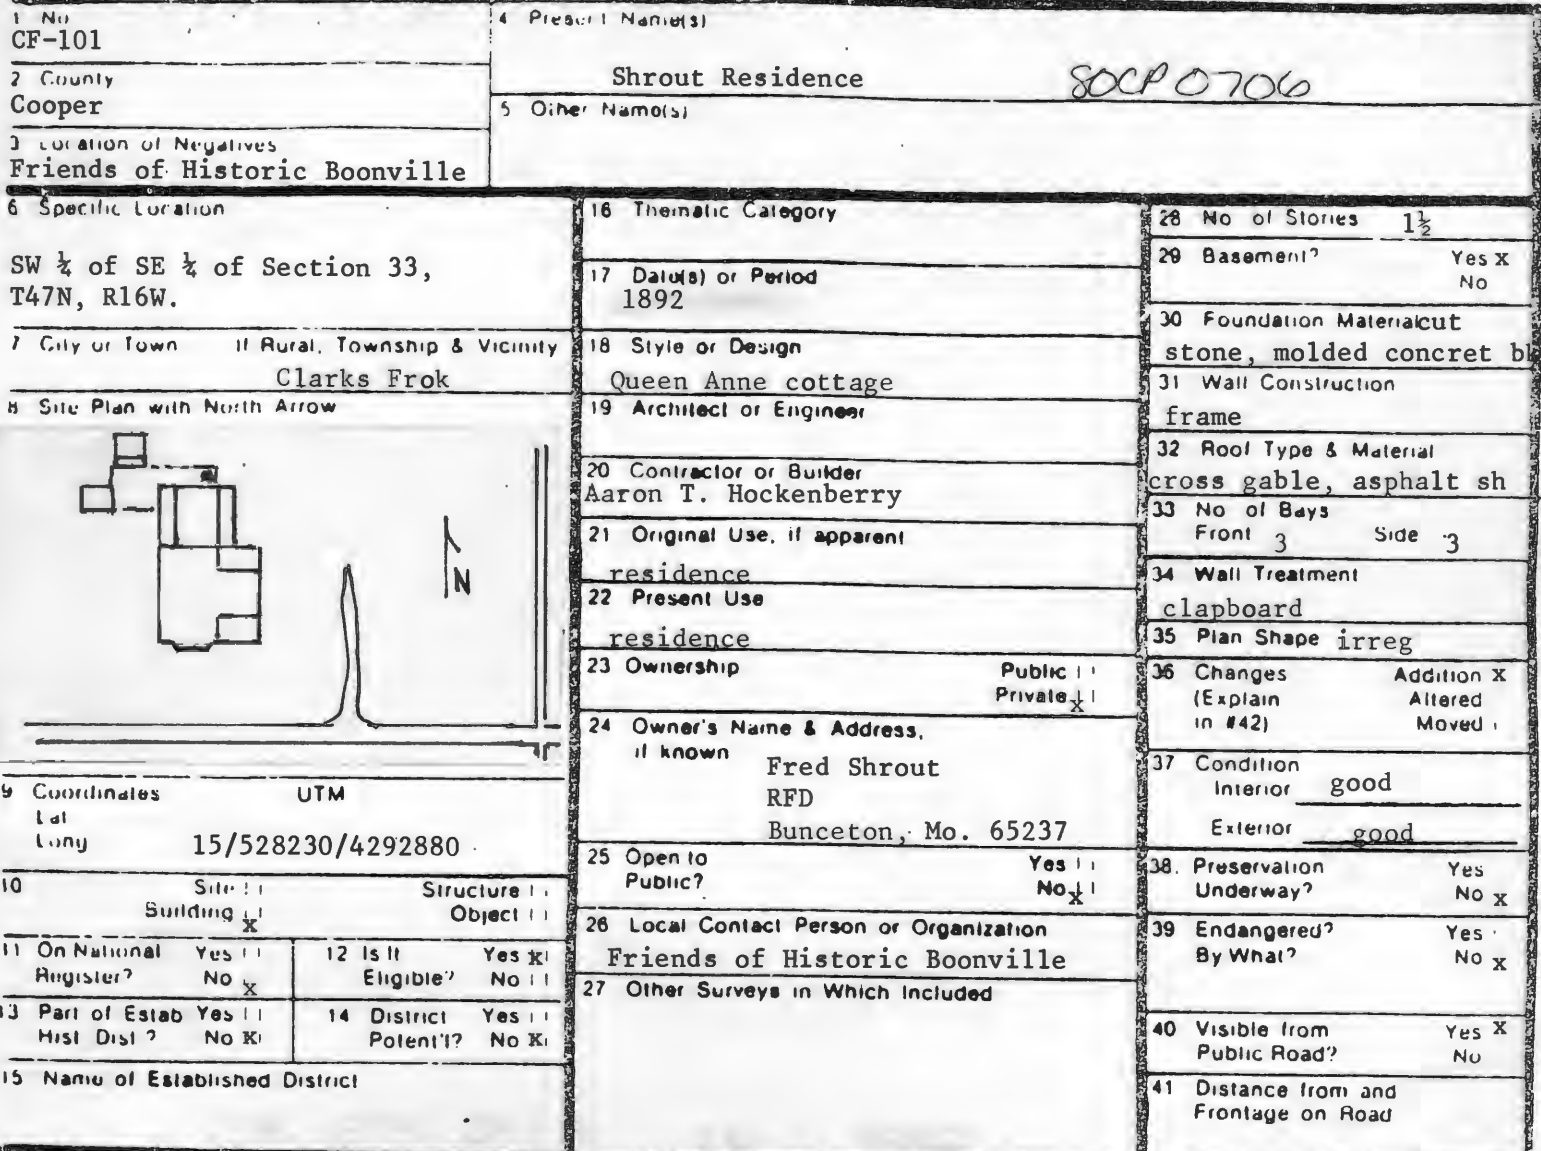 1 No
CF-101
2 County
Cooper
3 Location of Negatives
Friends of Historic Boonville
4 Present Name(s)
Shrout Residence
SOCP0706
5 Other Name(s)
6 Specific Location
SW ¼ of SE ¼ of Section 33,
T47N, R16W.
7 City or Town If Rural, Township & Vicinity
Clarks Frok
8 Site Plan with North Arrow
N
9 Coordinates UTM
Lat
Long
15/528230/4292880
10 Site
Structure
Building x
Object
11 On National Register? Yes
No x
12 Is It Eligible? Yes x
No
13 Part of Estab Hist Dist ? Yes
No x
14 District Potent'l? Yes
No x
15 Name of Established District
16 Thematic Category
17 Date(s) or Period
1892
18 Style or Design
Queen Anne cottage
19 Architect or Engineer
20 Contractor or Builder
Aaron T. Hockenberry
21 Original Use, if apparent
residence
22 Present Use
residence
23 Ownership Public
Private x
24 Owner's Name & Address,
if known
Fred Shrout
RFD
Bunceton, Mo. 65237
25 Open to Yes
Public? No x
26 Local Contact Person or Organization
Friends of Historic Boonville
27 Other Surveys in Which Included
28 No of Stories 1½
29 Basement? Yes x
No
30 Foundation Material cut
stone, molded concret bk
31 Wall Construction
frame
32 Roof Type & Material
cross gable, asphalt sh
33 No of Bays
Front 3 Side 3
34 Wall Treatment
clapboard
35 Plan Shape irreg
36 Changes Addition x
(Explain Altered
in #42) Moved
37 Condition
Interior good
Exterior good
38. Preservation Yes
Underway? No x
39 Endangered? Yes
By What? No x
40 Visible from Yes x
Public Road? No
41 Distance from and
Frontage on Road